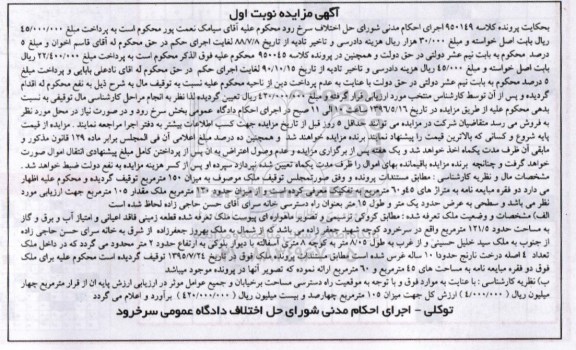 آگهی مزایده نوبت اول
بحکایت پرونده کلاسه ۹۵۰۱۴۹ اجرای احکام مدنی شورای حل اختلاف سرخ رود محکوم علیه آقای سیامک نعمت پور محکوم است به پرداخت مبلغ ۴۵/۰۰۰/۰۰۰
ریال بابت اصل خواسته و مبلغ ۳۰/۰۰۰ هزار ریال هزینه دادرسی و تاخیر تادیه از تاریخ ۸۸/۷/۸ لغایت اجرای حکم در حق محکوم له آقای قاسم اخوان و مبلغ ۵
درصد محکوم به بابت نیم عشر دولتی در حق دولت و همچنین در پرونده کلاسه ۹۵۰۰۴۵ محکوم علیه فوق الذکر محکوم است به پرداخت مبلغ ۲۲/۴۰۰/۰۰۰ ریال
بابت اصل خواسته و مبلغ ۴۵/۰۰۰ ریال هزینه دادرسی و تاخیر تادیه از تاریخ ۹۰/۱۰/۱۵ لغایت اجرای حکم در حق محکوم له آقای نادعلی بابایی و پرداخت مبلغ
۵ درصد محکوم به بابت نیم عشر دولتی در حق دولت با عنایت به عدم پرداخت دین از ناحیه محکوم علیه نسبت به توقیف مال به شرح ذیل به نفع محکوم له اقدام
گردیده و پس از آن توسط کارشناس منتخب مورد ارزیابی قرار گرفته و مبلغ ۴۲۰/۰۰۰/۰۰۰ ریال تعیین گردیده لذا نظر به انجام مراحل کارشناسی مال توقیفی به نسبت
بدهی محکوم علیه از طریق مزایده در تاریخ ۱۳۹۶/۵/۱۶ از ساعت ۱۰ الی ۱۱ صبح در اجرای احکام دادگاه عمومی بخش سرخ رود و در صورت نیاز در محل مورد نظر
به فروش می رسد متقاضیان شرکت در مزایده می توانند حداقل ۵ روز قبل از تاریخ مزایده جهت کسب اطلاعات بیشتر به دفتر اجرا مراجعه نمایند. مزایده از قیمت
پایه شروع و کسانی که بالاترین قیمت را پیشنهاد نمایند برنده مزایده خواهند شد و همچنین ده درصد مبلغ اعلامی آن فی المجلس برابر ماده ۱۲۹ قانون مذکور و
مابقی آن ظرف مدت یکماه اخذ خواهد شد و یک هفته پس از برگزاری مزایده و عدم وصول اعتراض به ان پس از پرداختن کامل مبلغ پیشنهادی انتقال اموال صورت
خواهد گرفت و چنانچه برنده مزایده باقیمانده بهای اموال را ظرف مدت یکماه تعیین شده نپردازد سپرده او پس از کسر هزینه مزایده به نفع دولت ضبط خواهد شد.
مشخصات مال و نظریه کارشناسی : مطابق مستندات پرونده و وفق صورتمجلس توقیف ملک موصوف به میزان ۱۵۰ مترمربع توقیف گردیده و محکوم علیه اظهار
می دارد دو فقره مبایعه نامه به متراژ های ۴۵و۶۰ مترمربع به تفکیک معرفی کرده است و از میزان حدود ۱۳۰ مترمربع ملک مقدار ۱۰۵ مترمربع جهت ارزیابی مورد
نظر می باشد و سطحی به عرض حدود یک متر و طول ۱۵ متر بعنوان راه دسترسی خانه سرای آقای حسن حاجی زاده لحاظ شده است
الف) مشخصات و وضعیت ملک تعرفه شده : مطابق کروکی ترسیمی و تصویر ماهواره ای پیوست ملک تعرفه شده قطعه زمینی فاقد اعیانی و امتیاز آب و برق و گاز
به مساحت حدود ۱۲۱/۵ مترمربع واقع در سرخرود کوچه شهید جعفرزاده می باشد که از شمال به ملک بهروز جعفرزاده از شرق به خانه سرای حسن حاجی زاده
از جنوب به ملک سید خلیل حسینی و از غرب به طول ۸/۰۵ متر به کوچه ۸ متری آسفالته با دیوار بلوکی به ارتفاع حدود ۲ متر محدود می گردد که در داخل ملک
تعداد ۴ اصله درخت نارنج حدودا ۱۰ ساله غرس شده است مطابق مستندات پرونده ملک فوق در تاریخ ۱۳۹۵/۷/۲۴ توقیف گردیده است محکوم علیه برای ملک
فوق دو فقره مبایعه نامه به مساحت های ۴۵ مترمربع و ۶۰ مترمربع ارائه نموده که تصویر آنها در پرونده موجود می باشد.
ب) نظریه کارشناسی : با عنایت به موارد فوق و با توجه به موقعیت راه دسترسی مساحت برخیابان و جمیع عوامل موثر در ارزیابی ارزش پایه ان از قرار مترمربع چهار
میلیون ریال ( ۴/۰۰۰/۰۰۰ ) ارزش کل جهت میزان ۱۰۵ مترمربع چهارصد و بیست میلیون ریال ( ۴۲۰/۰۰۰/۰۰۰ ) برآورد و اعلام می گردد
توکلی - اجرای احکام مدنی شورای حل اختلاف دادگاه عمومی سرخرود